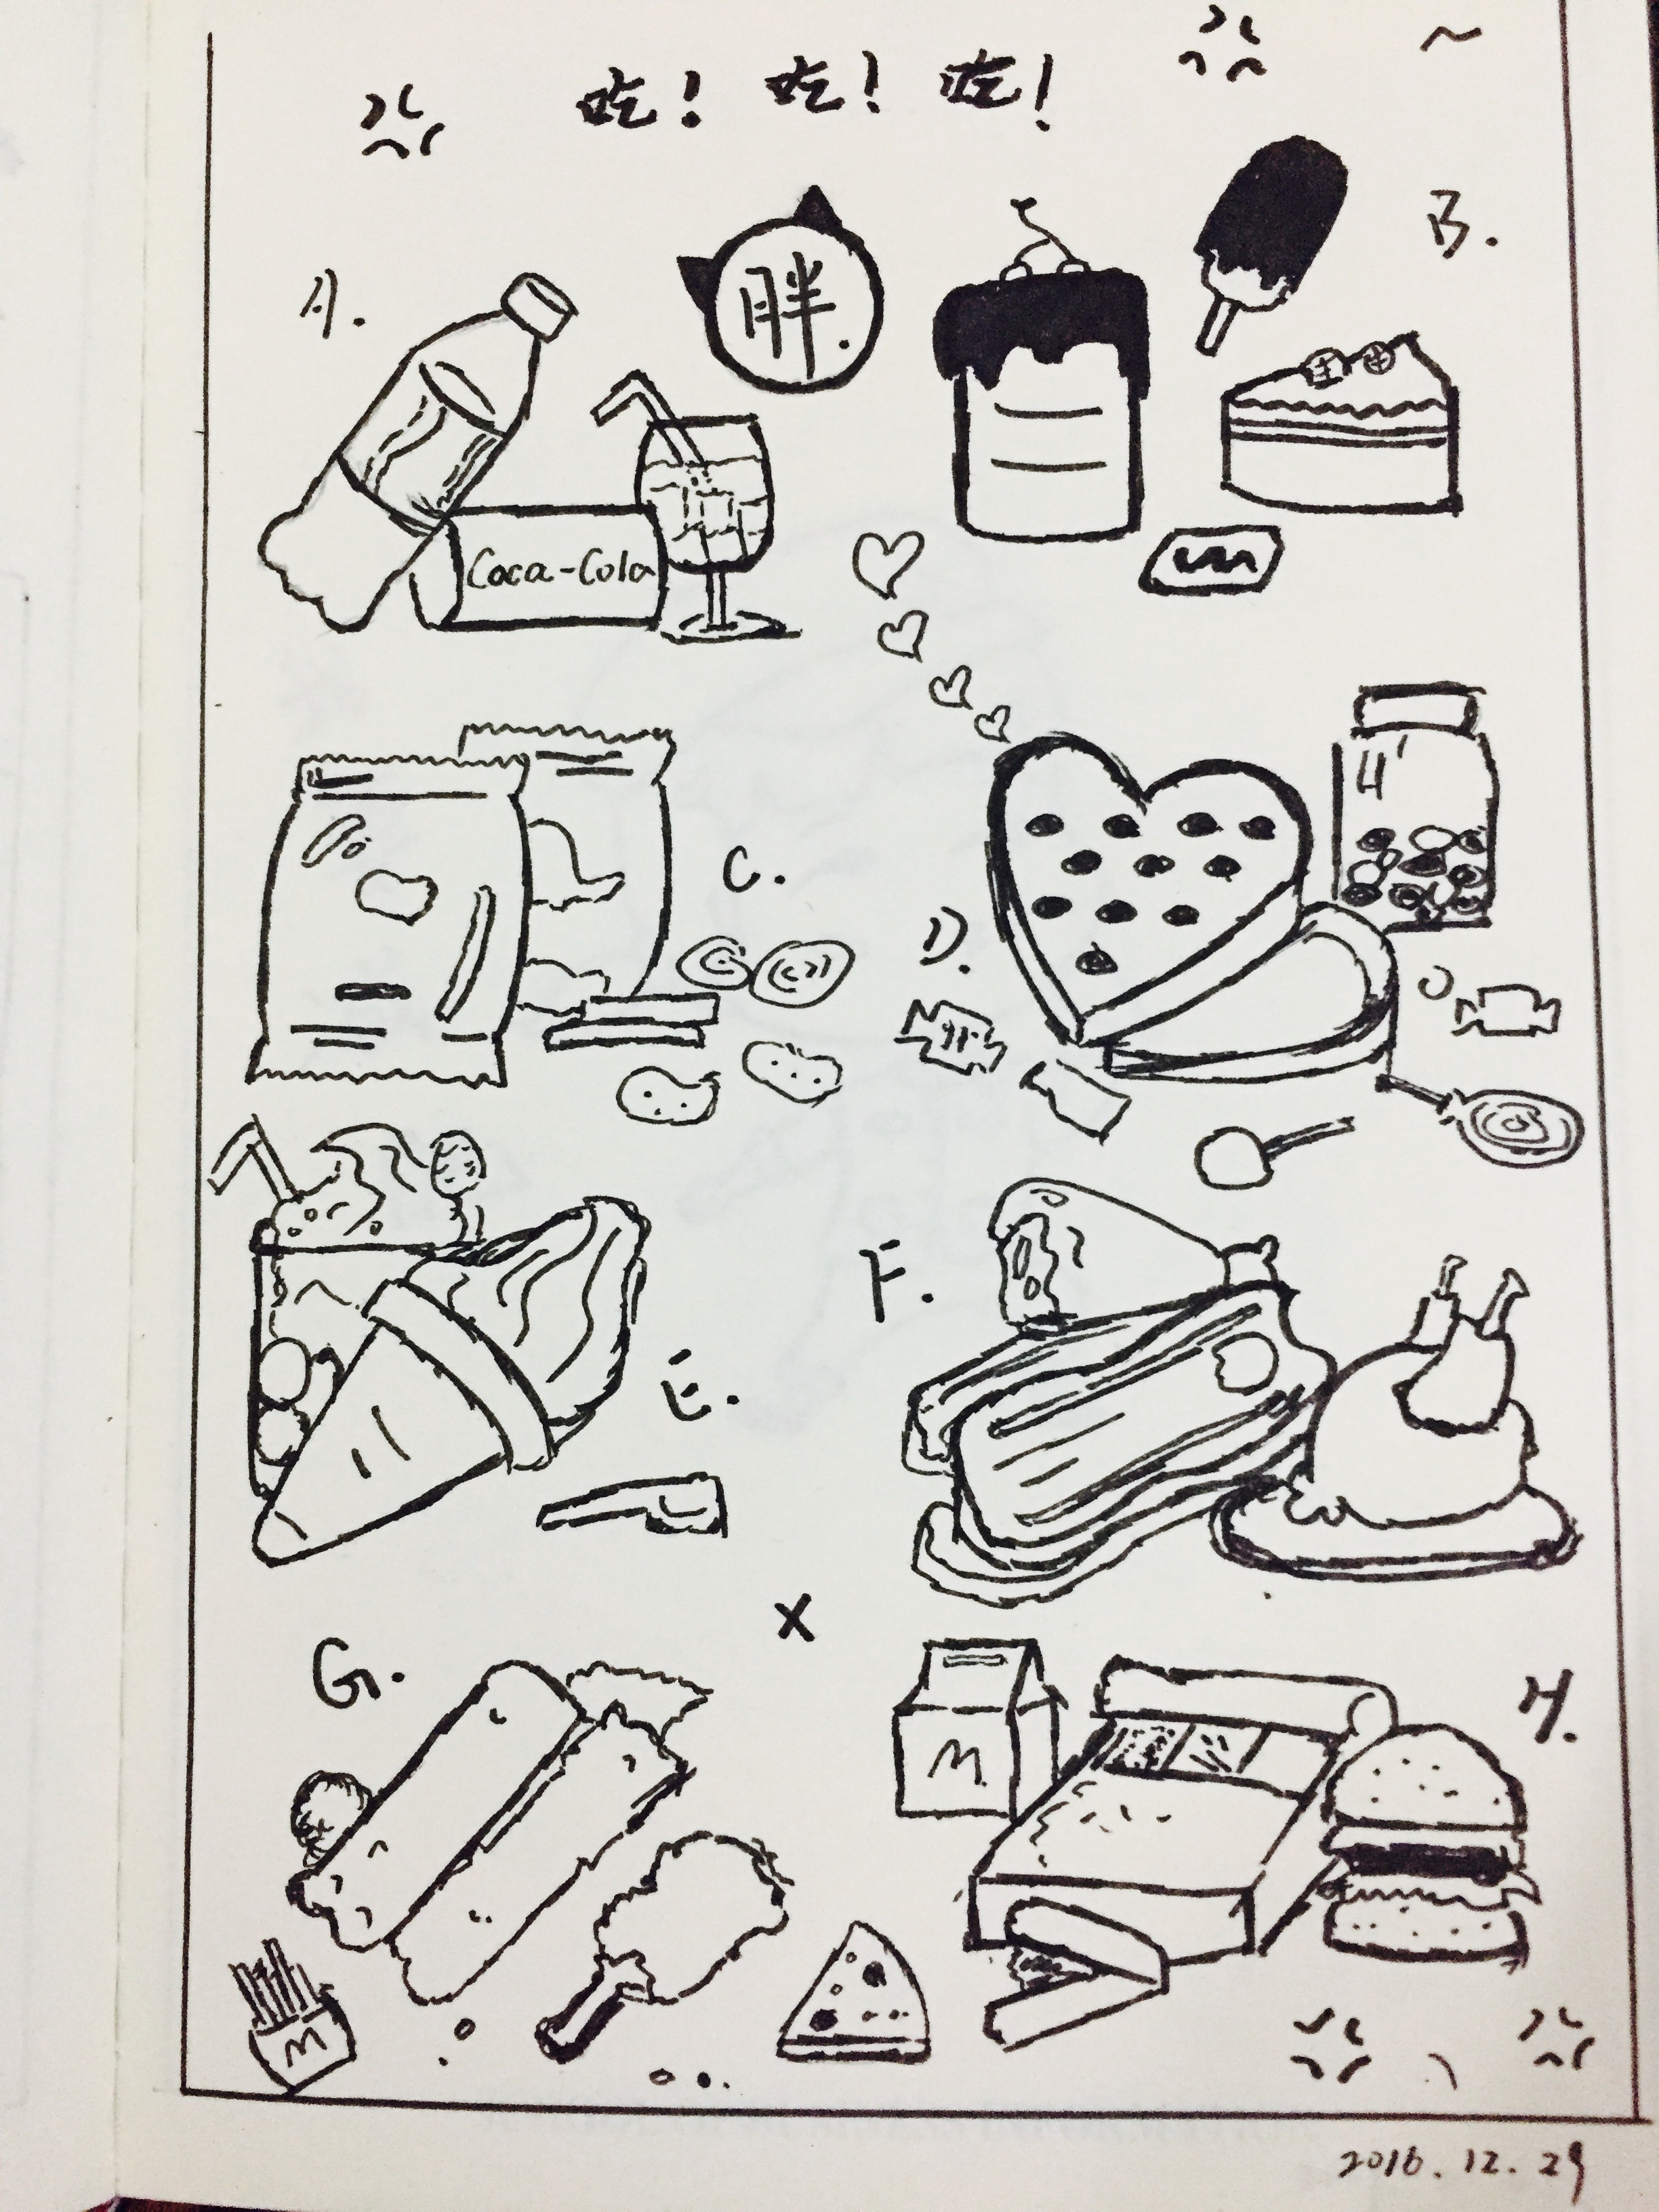 吃！吃！吃！
胖.
A.
B.
Coca-Cola
C.
D.
E.
F.
G.
M
M
H.
2016.12.29